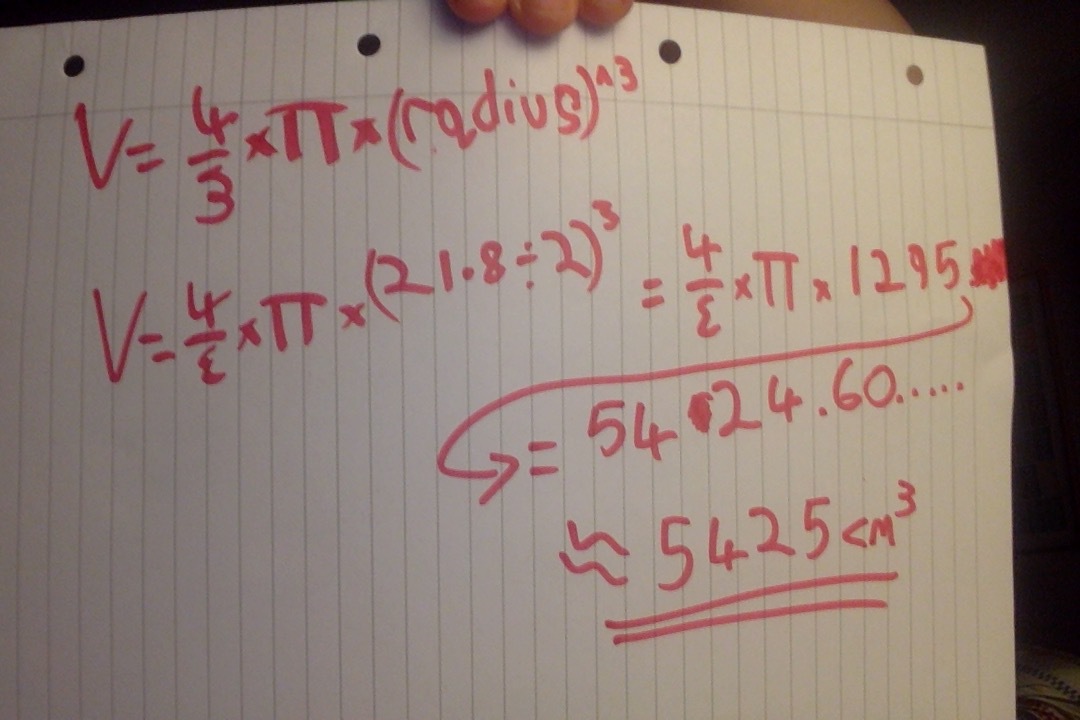 V = 4/3 × π × (radius)^3
V = 4/3 × π × (21.8 ÷ 2)³ = 4/3 × π × 1295
= 5424.60.....
≈ 5425 cm³